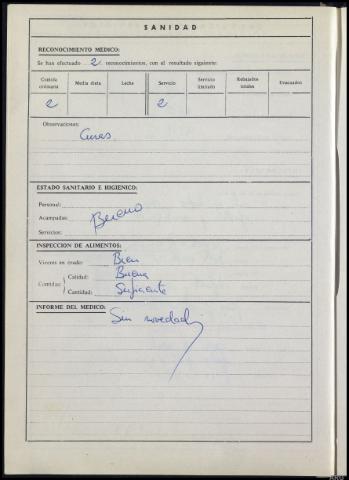 SANIDAD
RECONOCIMIENTO MEDICO:
Se han efectuado 2 reconocimientos, con el resultado siguiente:
Comida ordinaria Media dieta Leche Servicio Servicio limitado Rebajados Evacuados
2 2
Observaciones:
Cures
ESTADO SANITARIO E HIGIENICO:
Personal:
Acampadas: Bueno
Servicios:
INSPECCION DE ALIMENTOS:
Víveres en crudo: Bien
Comidas: Calidad: Buena
Cantidad: Suficiente
INFORME DEL MEDICO: Sin novedad